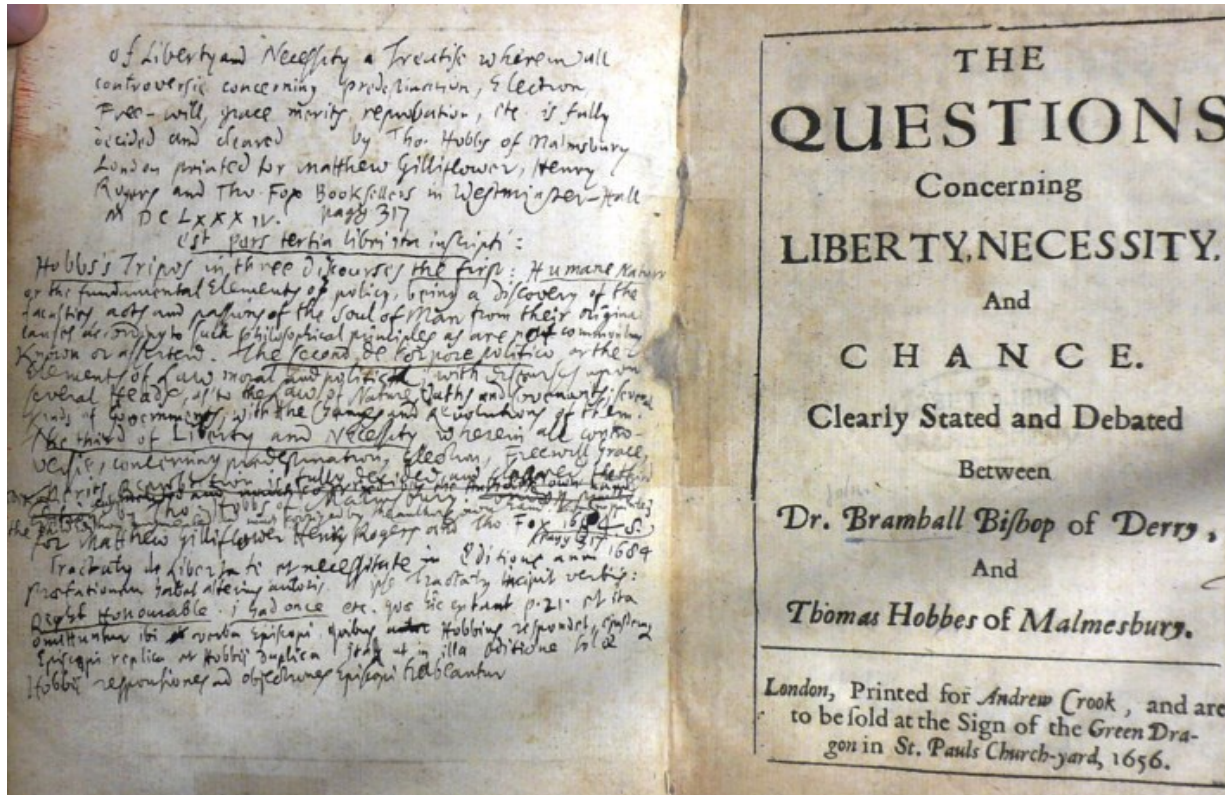 of Liberty and Necessity a Treatise wherein all
controversie concerning predestination, Election,
Free-will, grace merits, reprobation, etc. is fully
decided and cleared by Tho. Hobbs of Malmsbury
London printed for Matthew Gilliflower, Henry
Rogers and Tho Fox Booksellers in Westminster-Hall
M D C L X X X IV. pagg 317
est pars tertia libri ita inscripti:
Hobbs's Tripos in three discourses the first: Humane Nature
or the fundamental Elements of policy, being a discovery of the
faculties acts and passions of the soul of Man from their original
causes according to such philosophical principles as are not commonly
known or asserted. The second de corpore politico, or the
Elements of Law moral and politick with discourses upon
several Heads, as to the Law of Nature Oaths and covenants; several
kinds of Governments, with the Changes and Revolutions of them.
The third of Liberty and Necessity wherein all contro-
versie, concerning predestination, Election, Freewill, Grace,
Merits Reprobation is fully decided and
by Tho. Hobbs of Malmsbury
for Matthew Gilliflower Henry Rogers and Tho Fox 1684
pagg 317
Tractatu de Libertate et necessitate in Editione anni 1684
praefationem
Tractatus incipit verbis:
Right Honourable i had once etc. quae hic extant p. 21. et ita
omittuntur ibi verba Episcopi quibus Hobbius respondet,
Episcopi replica et Hobbii duplica ita ut in illa Editione solae
Hobbii responsiones ad objectiones Episcopi habeantur
THE
QUESTIONS
Concerning
LIBERTY, NECESSITY,
And
CHANCE.
Clearly Stated and Debated
Between
John
Dr. Bramhall Bishop of Derry,
And
Thomas Hobbes of Malmesbury.
London, Printed for Andrew Crook, and are
to be sold at the Sign of the Green Dra-
gon in St. Pauls Church-yard, 1656.